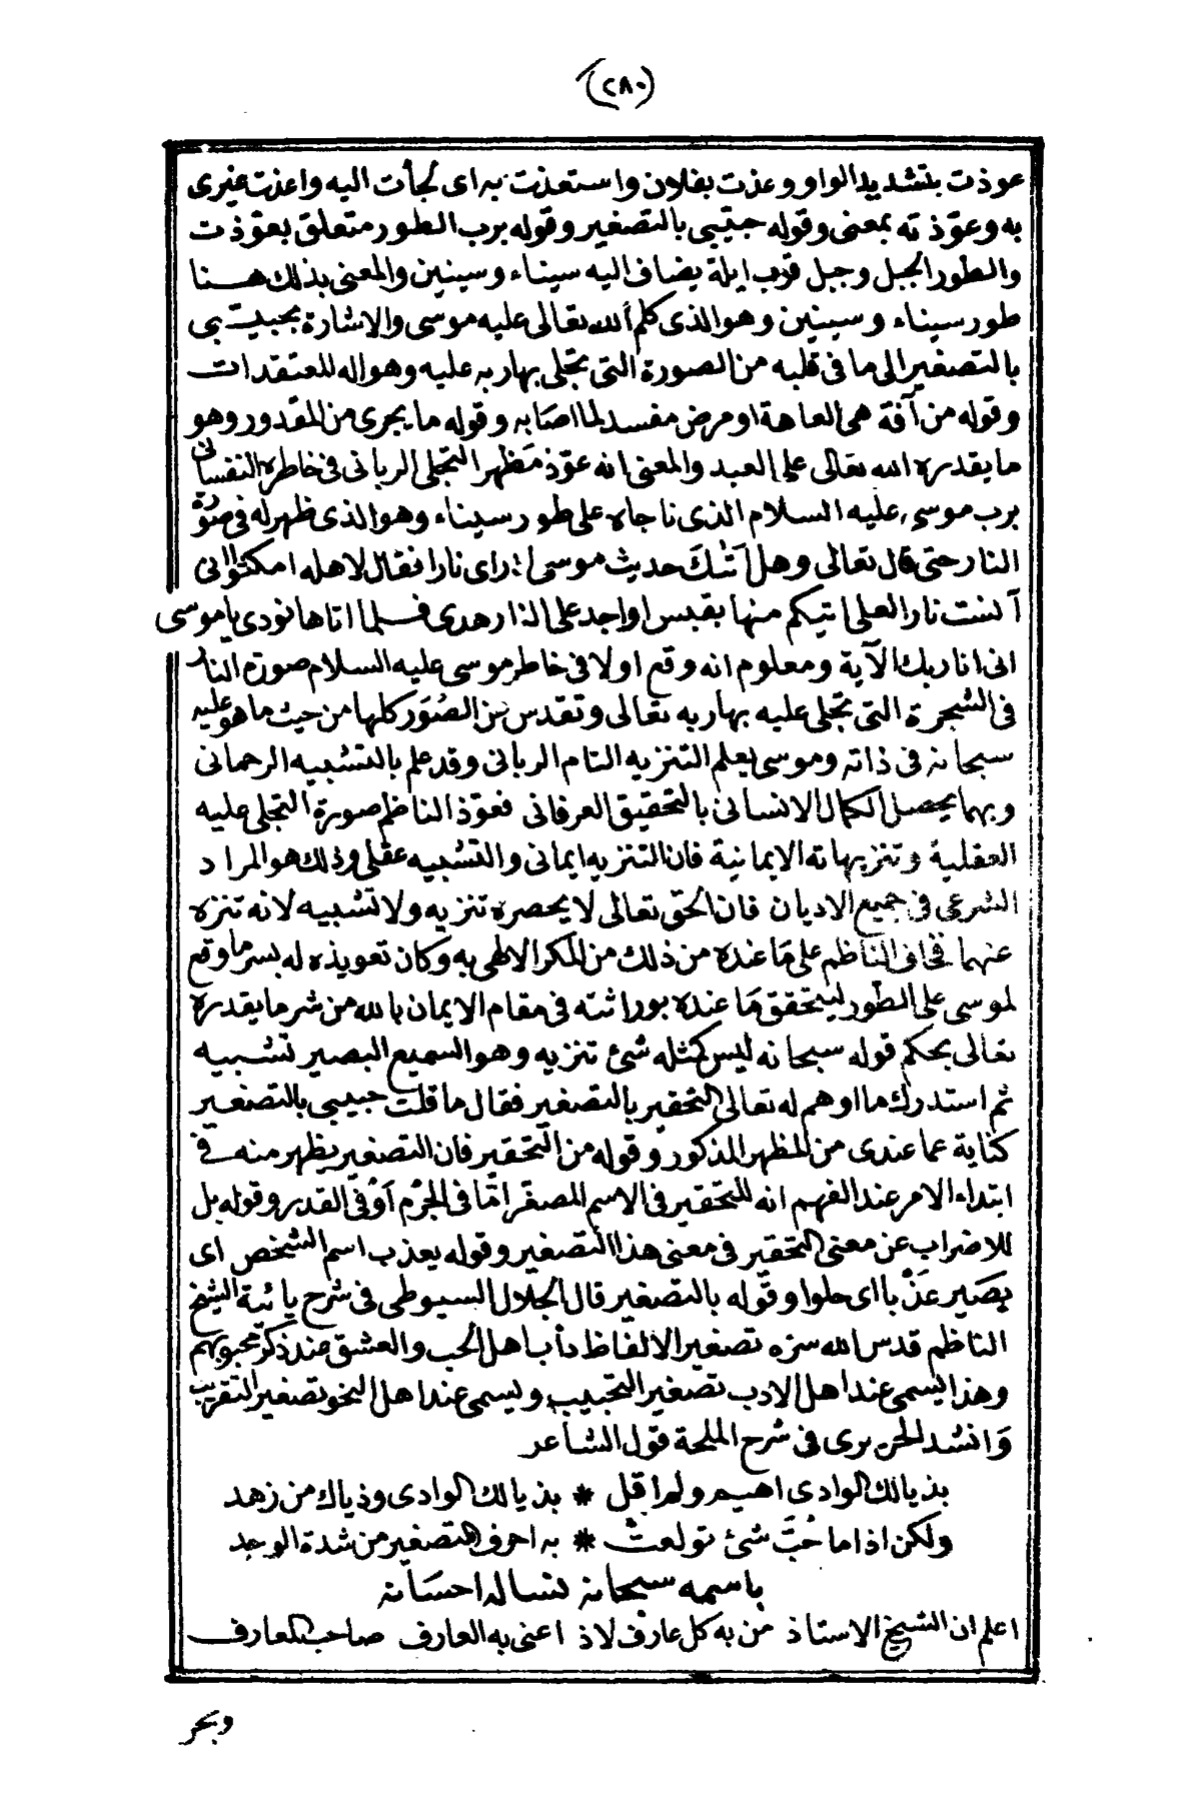 (٢٨٠)
عوذت بتشديد الواو وعذت بفلان واستعذت به اى لجأت اليه واعذت غيرى
به وعوّذته بمعنى وقوله حبيّبى بالتصغير وقوله برب الطور متعلق بعوّذت
والطور الجبل وجبل قرب ايلة يضاف اليه سيناء وسينين والمعنى بذلك هنا
طور سيناء وسينين وهو الذى كلم الله تعالى عليه موسى والاشارة بحبيبى
بالتصغير الى ما فى قلبه من الصورة التى تجلى بها ربه عليه وهو اله المعتقدات
وقوله من آفة هى العاهة او مرض مفسد لما اصابه وقوله ما يجرى من المقدور وهو
ما يقدره الله تعالى على العبد والمعنى انه عوّذ مَظهر التجلى الربانى فى خاطره النفسانى
برب موسى عليه السلام الذى ناجاه على طور سيناء وهو الذى ظهر له فى صورة
النار حتى قال تعالى وهل أتٰك حديث موسى اذ راى نارا فقال لاهله امكثوا انى
آنست نارا لعلى اتيكم منها بقبس او اجد على النار هدى فلما اتاها نودى يا موسى
انى انا ربك الآية ومعلوم انه وقع اولا فى خاطر موسى عليه السلام صورة النار
فى الشجرة التى تجلى عليه بها ربه تعالى وتقدس عن الصُوَر كلها من حيث ما هو عليه
سبحانه فى ذاته وموسى يعلم التنزيه التام الربانى وقد علم بالتشبيه الرحمانى
وبهما يحصل الكمال الانسانى بالتحقيق العرفانى فعوّذ الناظم صورة التجلى عليه
العقلية وتنزيهاته الايمانية فان التنزيه ايمانى والتشبيه عقلى وذلك هو المراد
الشرعى فى جميع الاديان فان الحق تعالى لا يحصره تنزيه ولا تشبيه لانه تنزه
عنهما فخاف الناظم على مَا عنده من ذلك من المكر الالهى به وكان تعويذه له بسر ما وقع
لموسى على الطور ليتحقق مَا عنده بوراثته فى مقام الايمان بالله من شر ما يقدره
تعالى بحكم قوله سبحانه ليس كمثله شئ تنزيه وهو السميع البصير تشبيه
ثم استدرك ما اوهم له تعالى التحقير بالتصغير فقال ما قلت حبيبى بالتصغير
كناية عما عندى من المظهر المذكور وقوله من التحقير فان التصغير يظهر منه فى
ابتداء الامر عند الفهم انه للتحقير فى الاسم المصغّر امّا فى الجرْم اَوْ فى القدر وقوله بل
للاضراب عن معنى التحقير فى معنى هذا التصغير وقوله يعذب اسم الشخص اى
يصَير عَذْبا اى حلوا وقوله بالتصغير قال الجلال السيوطى فى شرح يائية الشيخ
الناظم قدس الله سره تصغير الالفاظ دأب اهل الحب والعشق عند ذكر محبوبهم
وهذا يسمى عند اهل الادب تصغير التحبيب ويسمى عند اهل النحو تصغير التقريب
وَانشد الحريرى فى شرح الملحة قول الشاعر
بذيالك الوادى اهيم ولم اقل * بذيالك الوادى وذياك من زهد
ولكن اذا ما حُبَّ شئ تولعت * به احرف التصغير من شدة الوجد
باسمه سبحانه نساله احسَانه
اعلم ان الشيخ الاستاذ من به كل عارف لاذ اعنى به العارف صاحب المعارف
وبحر